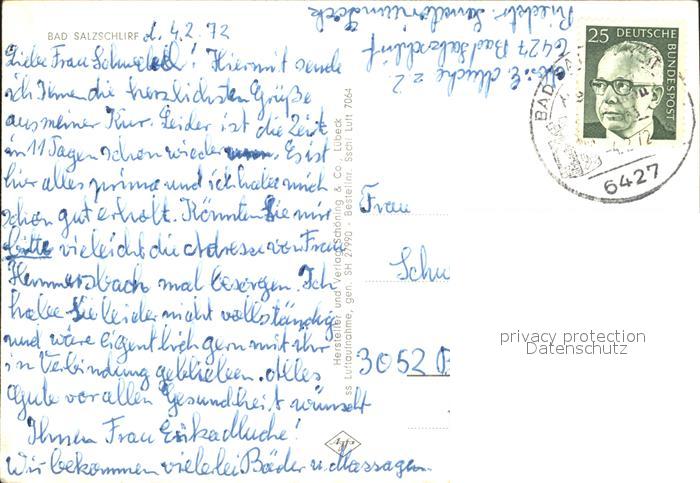 BAD SALZSCHLIRF d. 4.2.72
Liebe Frau! Hiermit sende
ich Ihnen die herzlichsten Grüße
aus meiner Kur. Leider ist die Zeit
in 11 Tagen schon wieder Es ist
hier alles prima und ich habe mich
schon gut erholt. Könnten Sie mir
bitte vieleicht die Adresse von Frau
Hemmersbach mal besorgen. Ich
habe Sie leider nicht vollständig
und wäre eigentlich gern mit ihr
in Verbindung geblieben. Alles
Gute vor allen Gesundheit wünscht
Ihnen Frau
Wir bekommen vielerlei Bäder u. Massagen.
6427 Bad Salzschlirf
Hersteller und Verlag Schöning & Co., Lübeck
ss Luftaufnahme, gen. SH 27990 - Bestellnr. Ssch. Luft 7064
25 DEUTSCHE BUNDESPOST
BAD
-4.2.72
6427
Frau
Schu
3052 B
privacy protection
Datenschutz